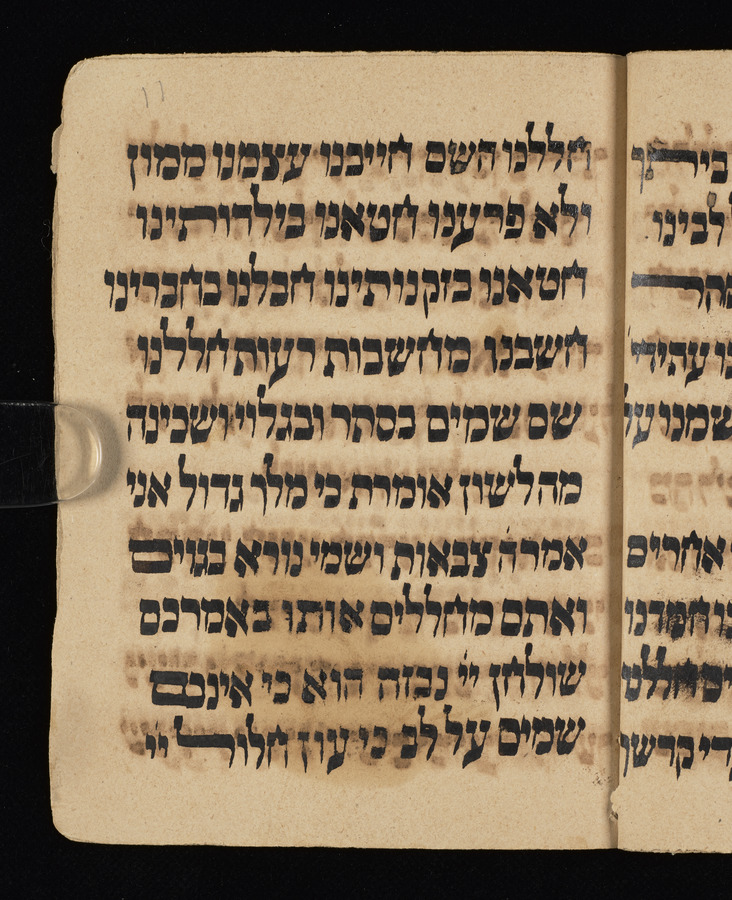 חללנו השם חייבנו עצמנו ממון
ולא פרענו חטאנו בילדותינו
חטאנו בזקנותינו חבלנו בחברינו
חשבנו מחשבות רעות חללנו
שם שמים בסתר ובגלוי ושכינה
מה לשון אומרת כי מלך גדול אני
אמרה צבאות ושמי נורא בגוים
ואתם מחללים אותו באמרכם
שולחן ייי נבזה הוא כי אינכם
שמים על לב כי עון חלול ייי
לבינו
אחרים